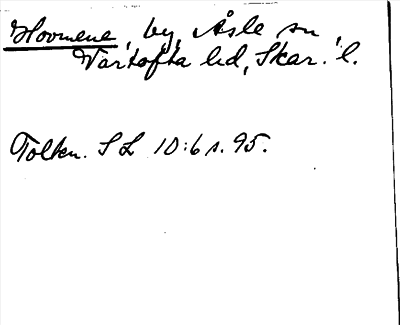 Hovmene, by, Åsle sn,
Vartofta hd, Skar. l.
Tolkn. SL 10:6 s. 95.